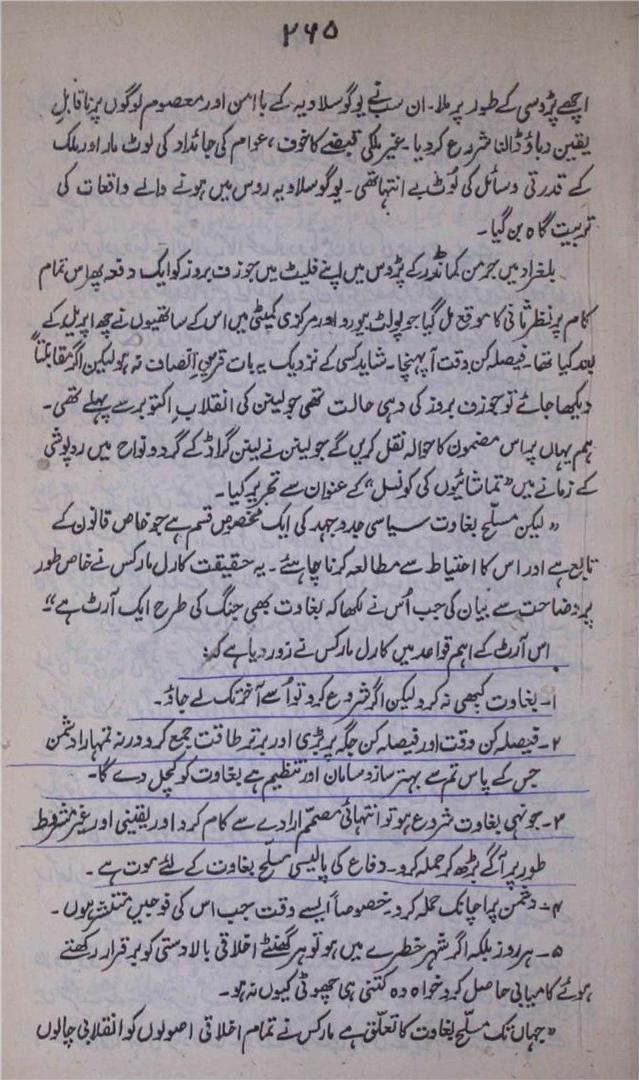 ۲۶۵
اچھے پڑوسی کے طور پر ملا۔ ان سب نے یوگوسلاویہ کے باامن اور معصوم لوگوں پر ناقابلِ
یقین دباؤ ڈالنا شروع کر دیا۔ غیر ملکی قبضے کا خوف، عوام کی جائداد کی لوٹ مار اور ملک
کے قدرتی وسائل کی لُوٹ بے انتہا تھی۔ یوگوسلاویہ روس میں ہونے والے واقعات کی
تربیت گاہ بن گیا۔
بلغراد میں جرمن کمانڈر کے پڑوس میں اپنے فلیٹ میں جوزف بروز کو ایک دفعہ پھر اس تمام
کام پر نظرِ ثانی کا موقع مل گیا جو پولٹ بیورو اور مرکزی کمیٹی میں اس کے ساتھیوں نے چھ اپریل کے
بعد کیا تھا۔ فیصلہ کن وقت آ پہنچا۔ شاید کسی کے نزدیک یہ بات قرینِ انصاف نہ ہو لیکن اگر مقابلتاً
دیکھا جائے تو جوزف بروز کی وہی حالت تھی جو لینن کی انقلابِ اکتوبر سے پہلے تھی۔
ہم یہاں پر اس مضمون کا حوالہ نقل کریں گے جو لینن نے لینن گراڈ کے گرد و نواح میں روپوشی
کے زمانے میں ”تماشائیوں کی کونسل“ کے عنوان سے تحریر کیا۔
”لیکن مسلّح بغاوت سیاسی جدوجہد کی ایک مخصوص قسم ہے جو خاص قانون کے
تابع ہے اور اس کا احتیاط سے مطالعہ کرنا چاہئے۔ یہ حقیقت کارل مارکس نے خاص طور
پر وضاحت سے بیان کی جب اُس نے لکھا کہ بغاوت بھی جنگ کی طرح ایک آرٹ ہے“۔
اس آرٹ کے اہم قواعد میں کارل مارکس نے زور دیا ہے کہ:
۱۔ بغاوت کبھی نہ کرو لیکن اگر شروع کرو تو اُسے آخر تک لے جاؤ۔
۲۔ فیصلہ کن وقت اور فیصلہ کن جگہ پر بڑی اور برتر طاقت جمع کرو ورنہ تمہارا دشمن
جس کے پاس تم سے بہتر ساز و سامان اور تنظیم ہے بغاوت کو کچل دے گا۔
۳۔ جونہی بغاوت شروع ہو تو انتہائی مصمّم ارادے سے کام کرو اور یقینی اور غیر مشروط
طور پر آگے بڑھ کر حملہ کرو۔ دفاع کی پالیسی مسلّح بغاوت کے لئے موت ہے۔
۴۔ دشمن پر اچانک حملہ کرو۔ خصوصاً ایسے وقت جب اس کی فوجیں منتشر ہوں۔
۵۔ ہر روز بلکہ اگر شہر خطرے میں ہو تو ہر گھنٹے اخلاقی بالادستی کو برقرار رکھتے
ہوئے کامیابی حاصل کرو خواہ وہ کتنی ہی چھوٹی کیوں نہ ہو۔
”جہاں تک مسلّح بغاوت کا تعلق ہے مارکس نے تمام اخلاقی اصولوں کو انقلابی چالوں